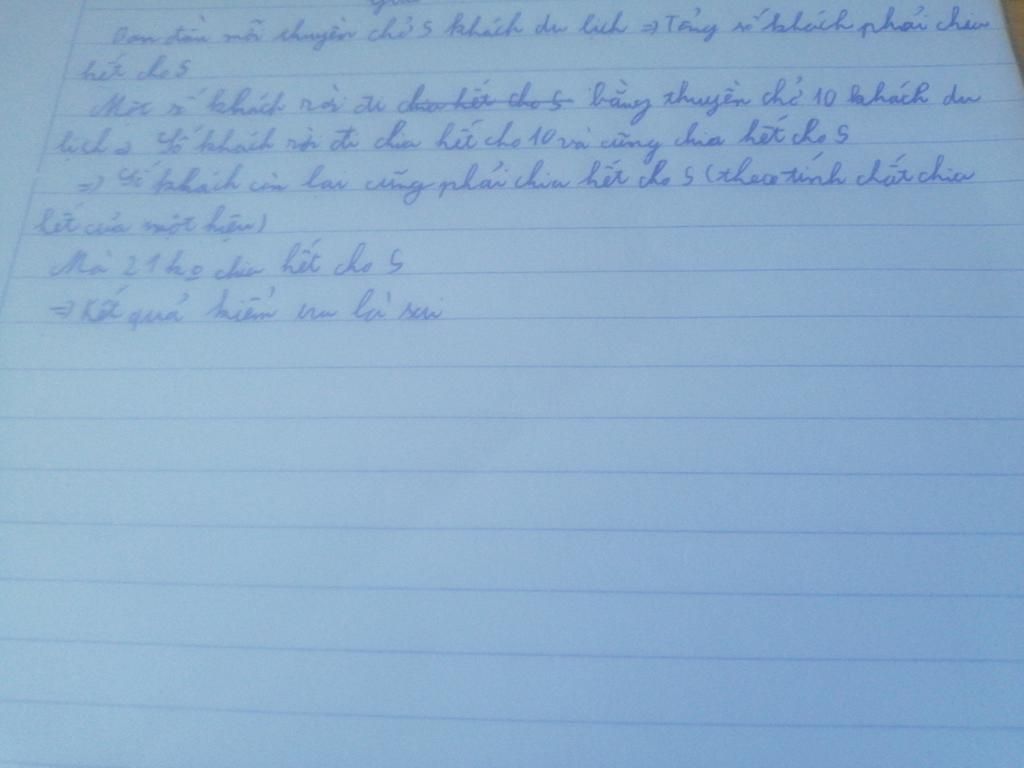 Ban đầu mỗi thuyền chở 5 khách du lịch => Tổng số khách phải chia
hết cho 5
Một số khách rời đi chia hết cho 5 bằng thuyền chở 10 khách du
lịch => Số khách rời đi chia hết cho 10 và cũng chia hết cho 5
=> Số khách còn lại cũng phải chia hết cho 5 (theo tính chất chia
hết của một hiệu)
Mà 21 ko chia hết cho 5
=> Kết quả kiểm tra là sai